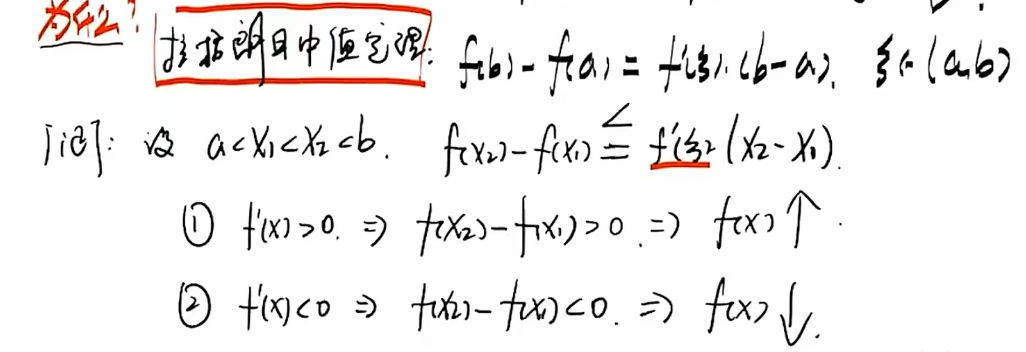 为什么?
拉格朗日中值定理: f(b)-f(a)=f'(ξ)·(b-a). ξ∈(a,b)
「证」: 设 a<x₁<x₂<b. f(x₂)-f(x₁) \overset{L}{=} f'(ξ)(x₂-x₁).
① f'(x)>0. ⇒ f(x₂)-f(x₁)>0. ⇒ f(x)↑.
② f'(x)<0 ⇒ f(x₂)-f(x₁)<0. ⇒ f(x)↓.